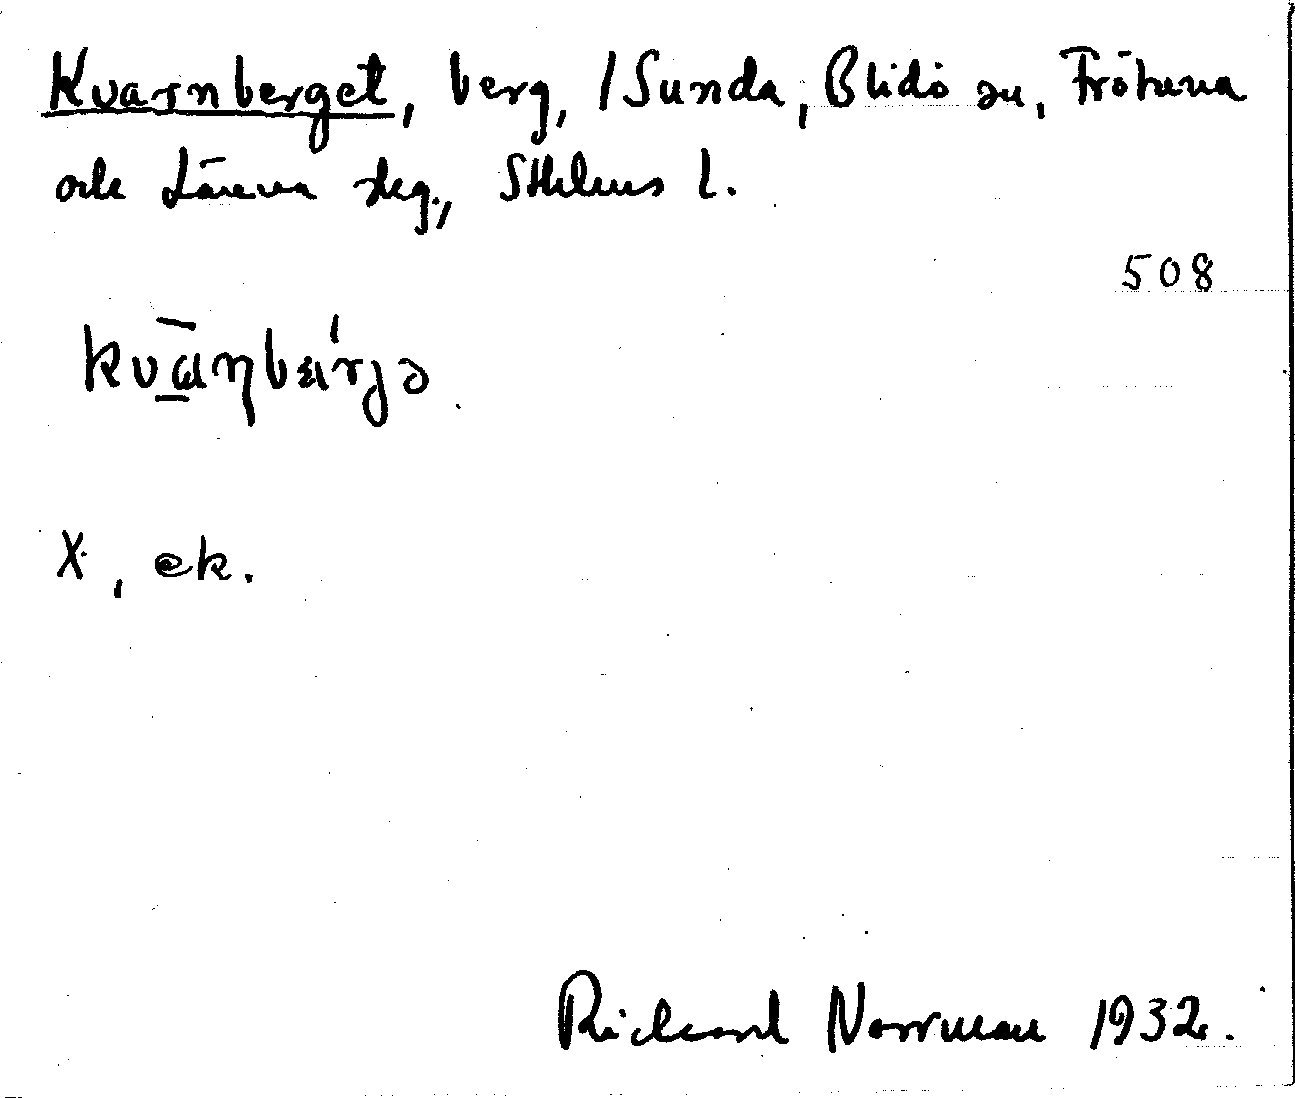 Kvarnberget, berg, /Sunda, Blidö sn, Frötuna
och Länna skg., Sthlms l.
508
kvānbærjə
X, ek.
Richard Norrman 1932.